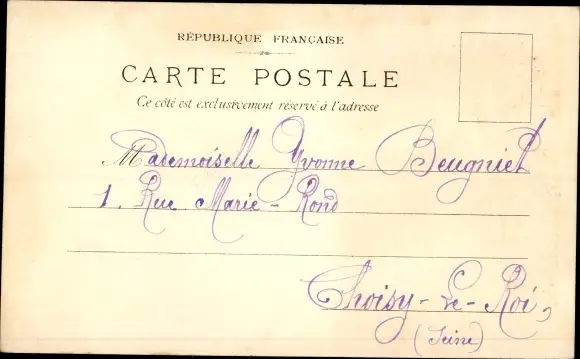 RÉPUBLIQUE FRANÇAISE
CARTE POSTALE
Ce côté est exclusivement réservé à l'adresse
Mademoiselle Yvonne Beugniet
1. Rue Marie-Rond
Choisy-Le-Roi,
(Seine)